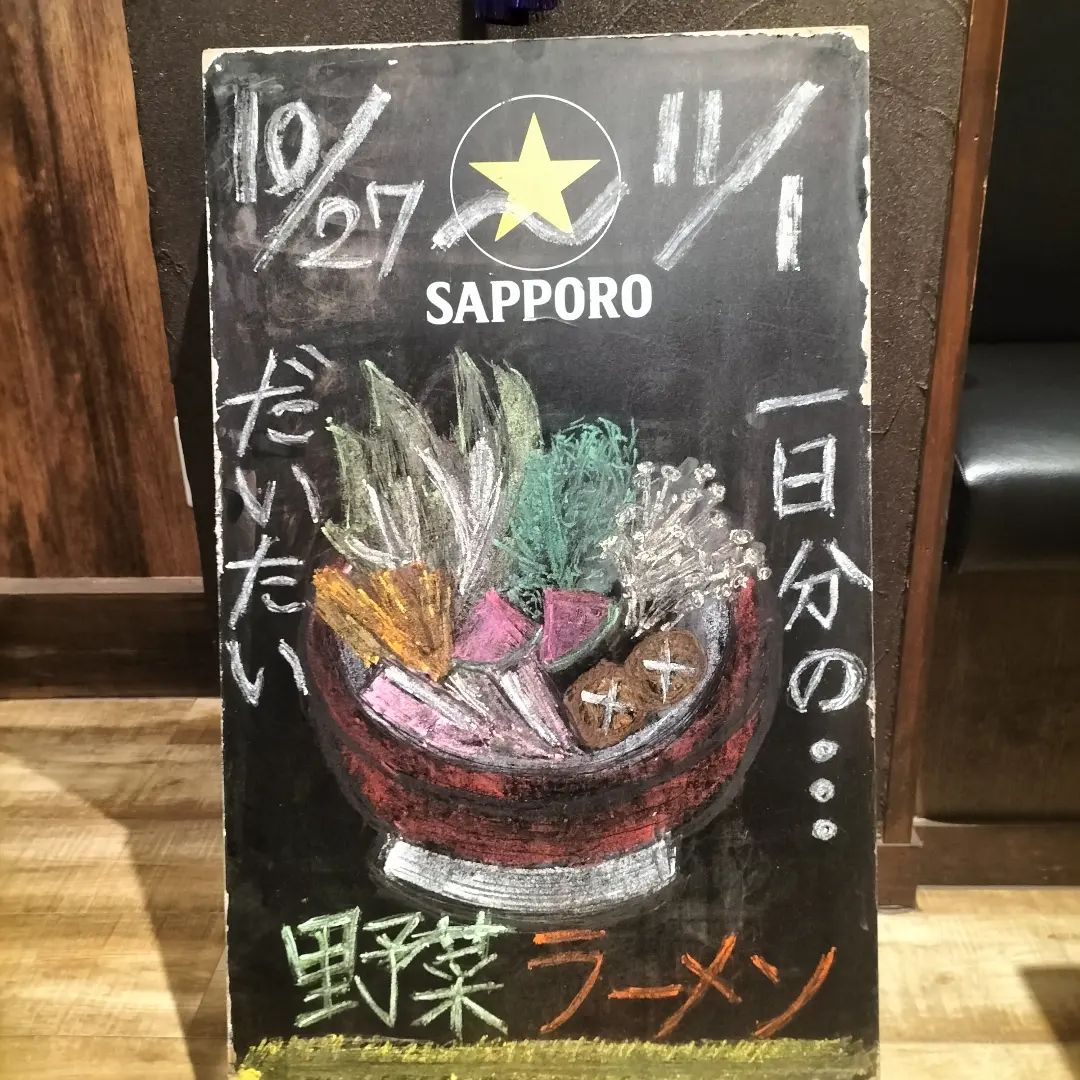 10/27 〜 11/1
SAPPORO
一日分の…
だいたい
野菜ラーメン